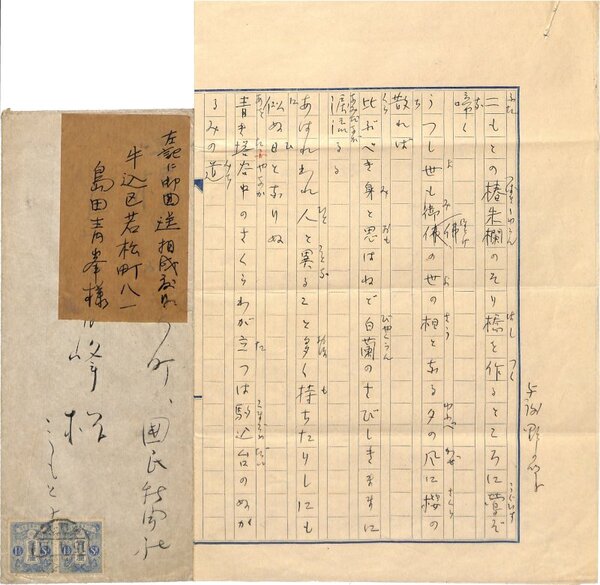 与謝野晶子
二もとの椿朱欄のそり橋を作るところに鶯ぞ
啼く
うつし世も御佛の世の相となる夕の風に桜の
散れば
比ぶべき身と思はねど白蘭のさびしきままに
涙流るる
あはれわれ人と異ること多く持ちたりしにも
似ぬ日となりぬ
青き塔谷中のさくらわが立つは駒込台のぬか
るみの道
町、國民新聞社
峰様
左記に御回送相成度候
牛込区若松町八一
島田青峯様